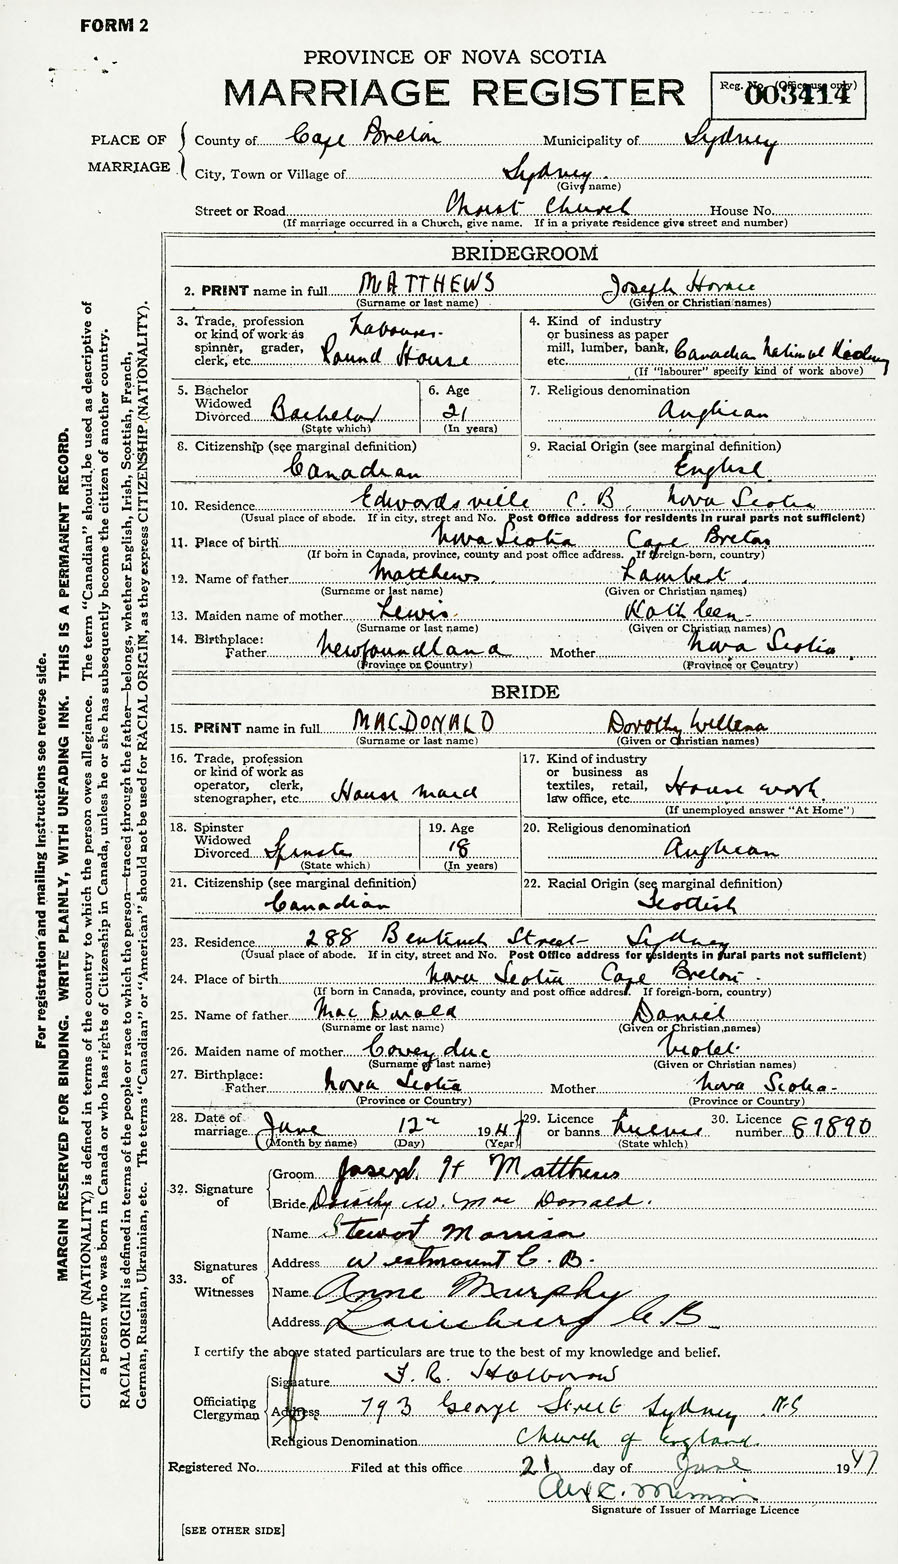 FORM 2
PROVINCE OF NOVA SCOTIA
MARRIAGE REGISTER
Reg. No. (Office use only)
003414
PLACE OF MARRIAGE
County of Cape Breton Municipality of Sydney
City, Town or Village of Sydney
(Give name)
Street or Road Christ Church House No.
(If marriage occurred in a Church, give name. If in a private residence give street and number)
BRIDEGROOM
2. PRINT name in full MATTHEWS Joseph Horace
(Surname or last name) (Given or Christian names)
3. Trade, profession or kind of work as spinner, grader, clerk, etc. Labourer Round House
4. Kind of industry or business as paper mill, lumber, bank, etc. Canadian National Railway
(If "labourer" specify kind of work above)
5. Bachelor Widowed Divorced Bachelor
(State which)
6. Age 21
(In years)
7. Religious denomination
Anglican
8. Citizenship (see marginal definition)
Canadian
9. Racial Origin (see marginal definition)
English
10. Residence Edwardsville C. B. Nova Scotia
(Usual place of abode. If in city, street and No. Post Office address for residents in rural parts not sufficient)
11. Place of birth Nova Scotia Cape Breton
(If born in Canada, province, county and post office address. If foreign-born, country)
12. Name of father Matthews Lambert
(Surname or last name) (Given or Christian names)
13. Maiden name of mother Lewis Kathleen
(Surname or last name) (Given or Christian names)
14. Birthplace:
Father Newfoundland Mother Nova Scotia
(Province or Country) (Province or Country)
BRIDE
15. PRINT name in full MACDONALD Dorothy Willena
(Surname or last name) (Given or Christian names)
16. Trade, profession or kind of work as operator, clerk, stenographer, etc. House maid
17. Kind of industry or business as textiles, retail, law office, etc. House work
(If unemployed answer "At Home")
18. Spinster Widowed Divorced Spinster
(State which)
19. Age 18
(In years)
20. Religious denomination
Anglican
21. Citizenship (see marginal definition)
Canadian
22. Racial Origin (see marginal definition)
Scottish
23. Residence 288 Bentinck Street Sydney
(Usual place of abode. If in city, street and No. Post Office address for residents in rural parts not sufficient)
24. Place of birth Nova Scotia Cape Breton
(If born in Canada, province, county and post office address. If foreign-born, country)
25. Name of father MacDonald Daniel
(Surname or last name) (Given or Christian names)
26. Maiden name of mother Violet
(Surname or last name) (Given or Christian names)
27. Birthplace:
Father Nova Scotia Mother Nova Scotia
(Province or Country) (Province or Country)
28. Date of marriage June 12th 1947
(Month by name) (Day) (Year)
29. Licence or banns licence
(State which)
30. Licence number 87890
32. Signature of
Groom Joseph H Matthews
Bride Dorothy W. Mac Donald.
33. Signatures of Witnesses
Name Stewart Morrison
Address Westmount C. B.
Name Anne Murphy
Address Louisburg C B
I certify the above stated particulars are true to the best of my knowledge and belief.
Officiating Clergyman
Signature
Address 793 George Street Sydney N-S
Religious Denomination Church of England
Registered No. Filed at this office 21 day of June 1947
Signature of Issuer of Marriage Licence
[SEE OTHER SIDE]
For registration and mailing instructions see reverse side.
MARGIN RESERVED FOR BINDING. WRITE PLAINLY, WITH UNFADING INK. THIS IS A PERMANENT RECORD.
CITIZENSHIP (NATIONALITY) is defined in terms of the country to which the person owes allegiance. The term "Canadian" should be used as descriptive of
a person who was born in Canada or who has rights of Citizenship in Canada, unless he or she has subsequently become the citizen of another country.
RACIAL ORIGIN is defined in terms of the people or race to which the person—traced through the father—belongs, whether English, Irish, Scottish, French,
German, Russian, Ukrainian, etc. The terms "Canadian" or "American" should not be used for RACIAL ORIGIN, as they express CITIZENSHIP (NATIONALITY).